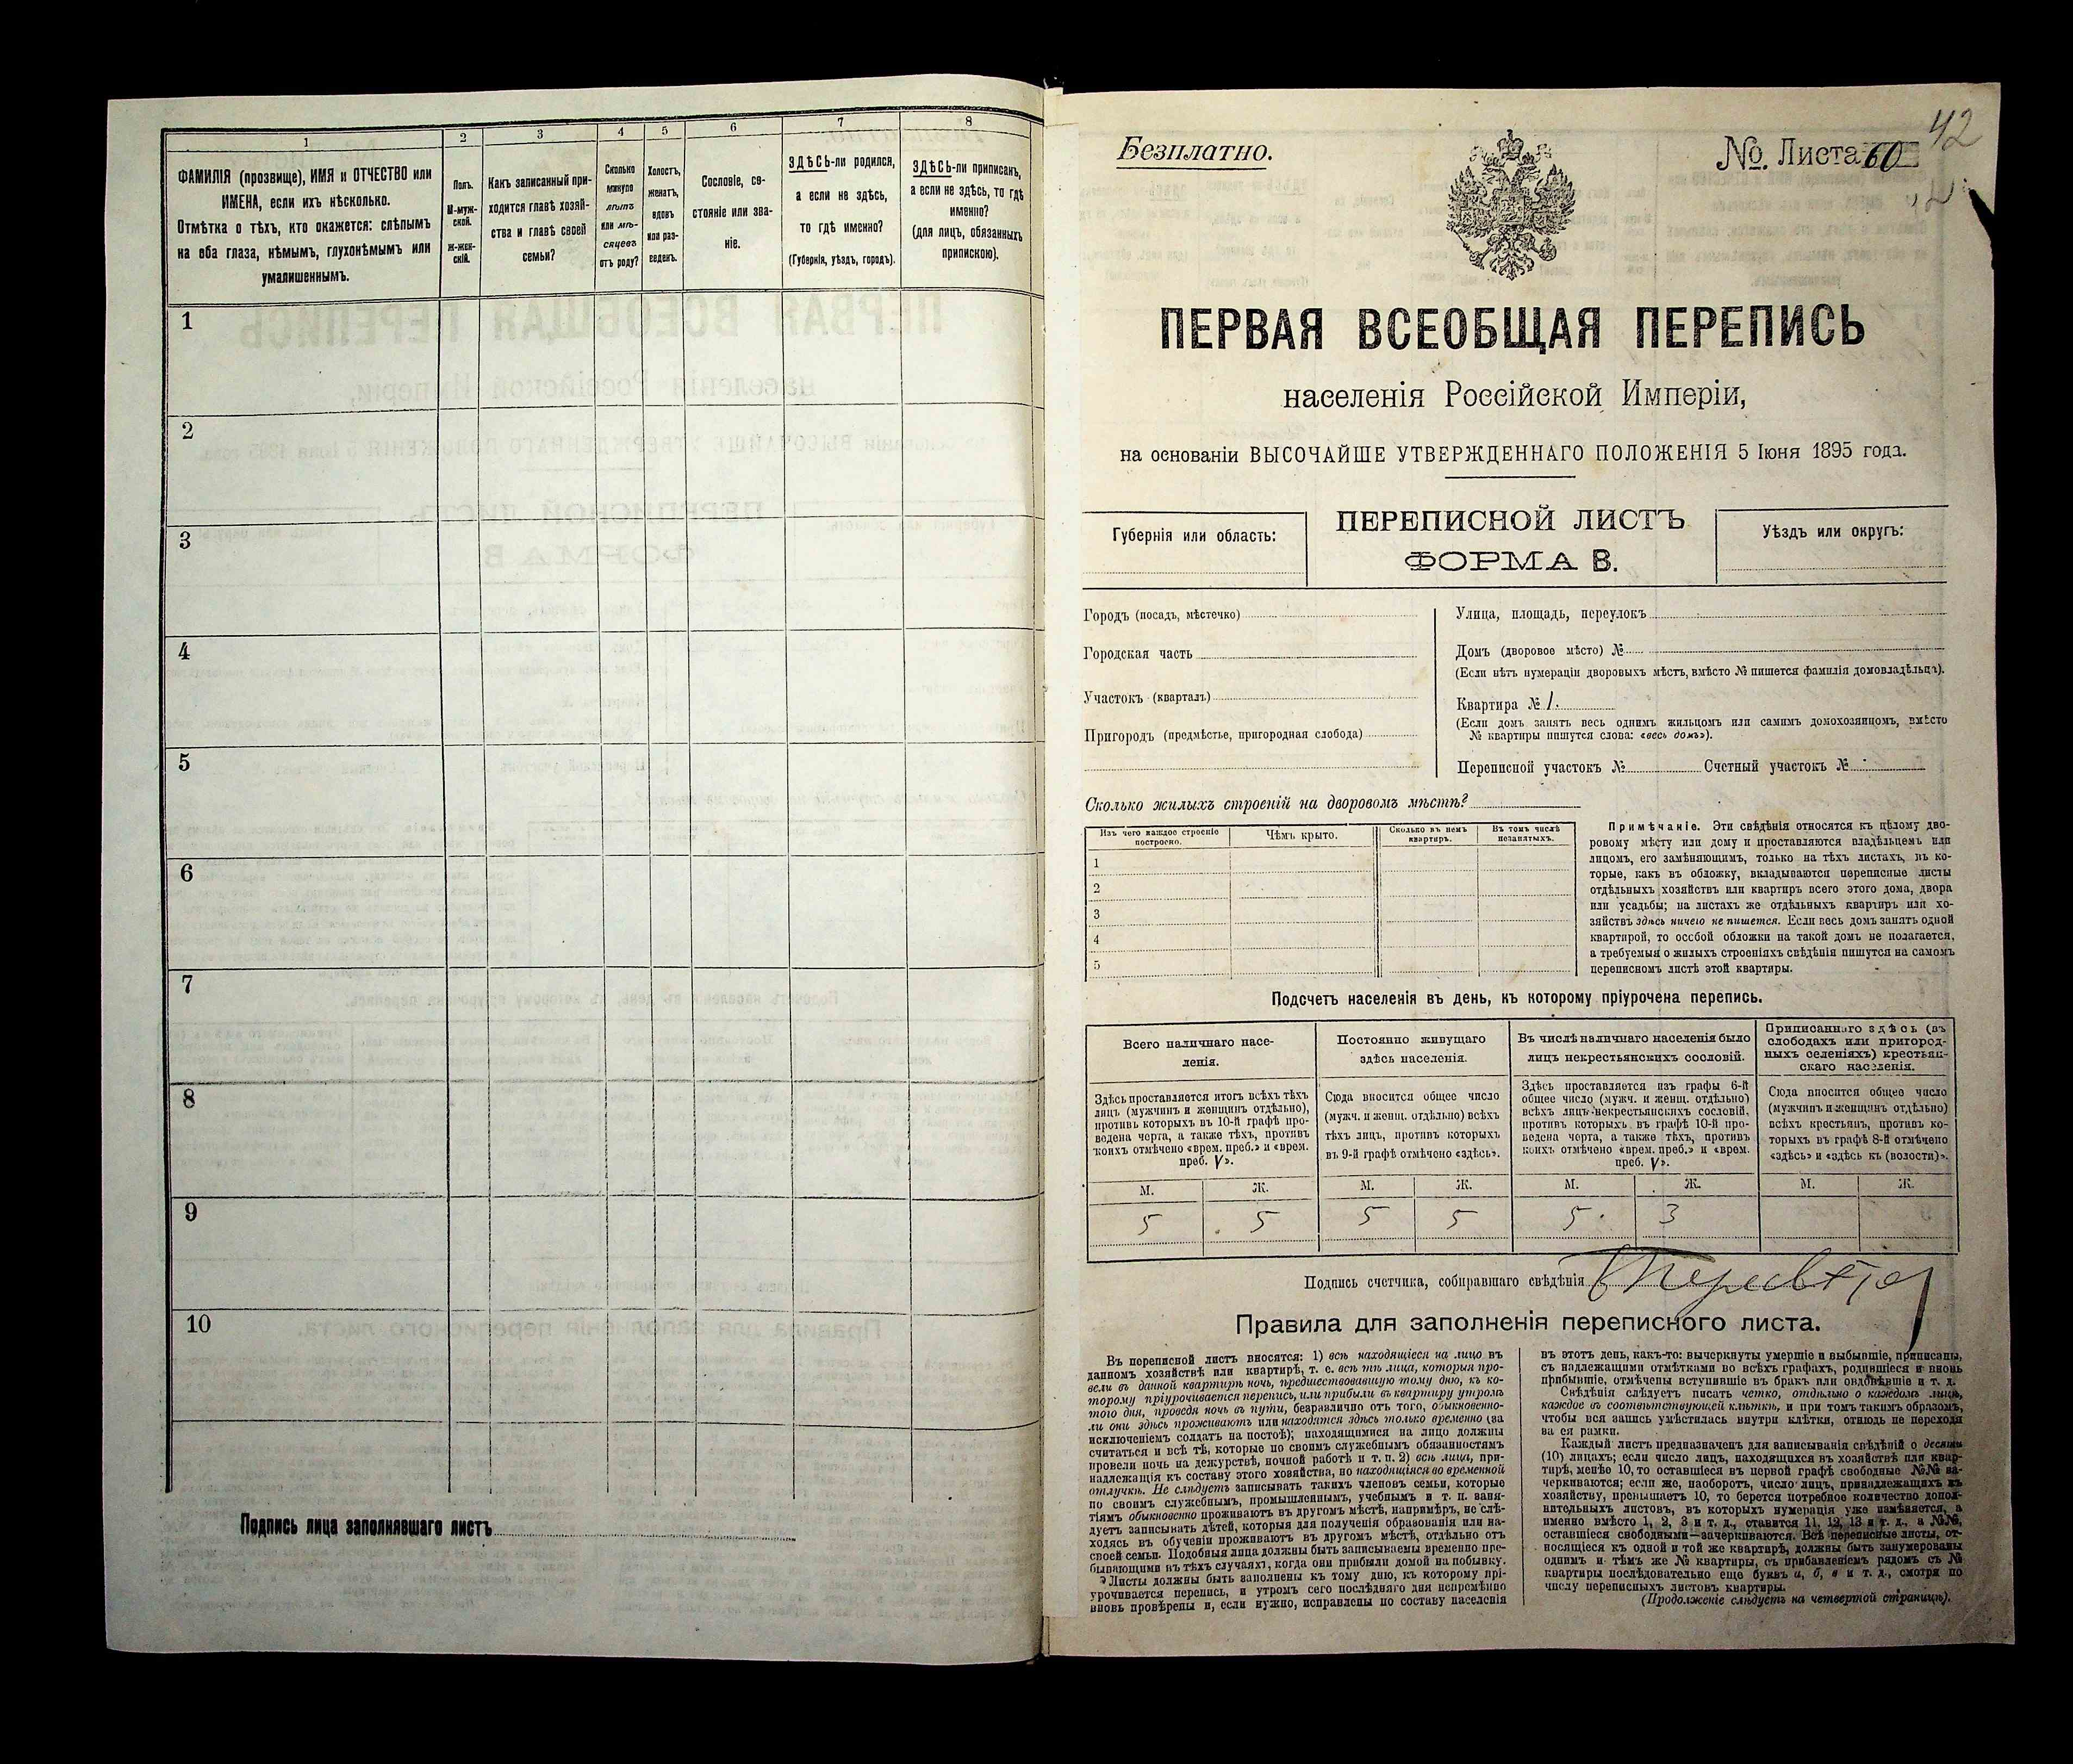 1
2
3
4
5
6
7
8
ФАМИЛІЯ (прозвище), ИМЯ и ОТЧЕСТВО или
ИМЕНА, если ихъ нѣсколько.
Отмѣтка о тѣхъ, кто окажется: слѣпымъ
на оба глаза, нѣмымъ, глухонѣмымъ или
умалишеннымъ.
Полъ.
М-муж-
ской.
Ж-жен-
скій.
Какъ записанный при-
ходится главѣ хозяй-
ства и главѣ своей
семьи?
Сколько
минуло
лѣтъ
или мѣ-
сяцевъ
отъ роду?
Холостъ,
женатъ,
вдовъ
или раз-
веденъ.
Сословіе, со-
стояніе или зва-
ніе.
ЗДѢСЬ-ли родился,
а если не здѣсь,
то гдѣ именно?
(Губернія, уѣздъ, городъ).
ЗДѢСЬ-ли приписанъ,
а если не здѣсь, то гдѣ
именно?
(для лицъ, обязанныхъ
припискою).
1
2
3
4
5
6
7
8
9
10
Подпись лица заполнявшаго листъ
42
Безплатно.
№. Листа 60
ПЕРВАЯ ВСЕОБЩАЯ ПЕРЕПИСЬ
населенія Россійской Имперіи,
на основаніи ВЫСОЧАЙШЕ УТВЕРЖДЕННАГО ПОЛОЖЕНІЯ 5 Іюня 1895 года.
Губернія или область:
ПЕРЕПИСНОЙ ЛИСТЪ
ФОРМА В.
Уѣздъ или округъ:
Городъ (посадъ, мѣстечко)
Городская часть
Участокъ (кварталъ)
Пригородъ (предмѣстье, пригородная слобода)
Улица, площадь, переулокъ
Домъ (дворовое мѣсто) №
(Если нѣтъ нумераціи дворовыхъ мѣстъ, вмѣсто № пишется фамилія домовладѣльца).
Квартира № 1.
(Если домъ занятъ весь однимъ жильцомъ или самимъ домохозяиномъ, вмѣсто
№ квартиры пишутся слова: «весь домъ»).
Переписной участокъ № Счетный участокъ №
Сколько жилыхъ строеній на дворовомъ мѣстѣ?
Изъ чего каждое строеніе
построено.
Чѣмъ крыто.
Сколько въ немъ
квартиръ.
Въ томъ числѣ
незанятыхъ.
1
2
3
4
5
Примѣчаніе. Эти свѣдѣнія относятся къ цѣлому дво-
ровому мѣсту или дому и проставляются владѣльцемъ или
лицомъ, его замѣняющимъ, только на тѣхъ листахъ, въ ко-
торые, какъ въ обложку, вкладываются переписные листы
отдѣльныхъ хозяйствъ или квартиръ всего этого дома, двора
или усадьбы; на листахъ же отдѣльныхъ квартиръ или хо-
зяйствъ здѣсь ничего не пишется. Если весь домъ занятъ одной
квартирой, то особой обложки на такой домъ не полагается,
а требуемыя о жилыхъ строеніяхъ свѣдѣнія пишутся на самомъ
переписномъ листѣ этой квартиры.
Подсчетъ населенія въ день, къ которому пріурочена перепись.
Всего наличнаго насе-
ленія.
Постоянно живущаго
здѣсь населенія.
Въ числѣ наличнаго населенія было
лицъ некрестьянскихъ сословій.
Приписаннаго здѣсь (въ
слободахъ или пригород-
ныхъ селеніяхъ) крестьян-
скаго населенія.
Здѣсь проставляется итогъ всѣхъ тѣхъ
лицъ (мужчинъ и женщинъ отдѣльно),
противъ которыхъ въ 10-й графѣ про-
ведена черта, а также тѣхъ, противъ
коихъ отмѣчено «врем. преб.» и «врем.
преб. V».
Сюда вносится общее число
(мужч. и женщ. отдѣльно) всѣхъ
тѣхъ лицъ, противъ которыхъ
въ 9-й графѣ отмѣчено «здѣсь».
Здѣсь проставляется изъ графы 6-й
общее число (мужч. и женщ. отдѣльно)
всѣхъ лицъ некрестьянскихъ сословій,
противъ которыхъ въ графѣ 10-й про-
ведена черта, а также тѣхъ, противъ
коихъ отмѣчено «врем. преб.» и «врем.
преб. V».
Сюда вносится общее число
(мужчинъ и женщинъ отдѣльно)
всѣхъ крестьянъ, противъ ко-
торыхъ въ графѣ 8-й отмѣчено
«здѣсь» и «здѣсь къ (волости)».
М. Ж. М. Ж. М. Ж. М. Ж.
5 5 5 5 5 3
Подпись счетчика, собиравшаго свѣдѣнія
Правила для заполненія переписного листа.
Въ переписной листъ вносятся: 1) всѣ находящіеся на лицо въ
данномъ хозяйствѣ или квартирѣ, т. е. всѣ тѣ лица, которыя про-
вели въ данной квартирѣ ночь, предшествовавшую тому дню, къ ко-
торому пріурочивается перепись, или прибыли въ квартиру утромъ
того дня, проведя ночь въ пути, безразлично отъ того, обыкновенно-
ли они здѣсь проживаютъ или находятся здѣсь только временно (за
исключеніемъ солдатъ на постоѣ); находящимися на лицо должны
считаться и всѣ тѣ, которые по своимъ служебнымъ обязанностямъ
провели ночь на дежурствѣ, ночной работѣ и т. п. 2) всѣ лица, при-
надлежащія къ составу этого хозяйства, но находящіяся во временной
отлучкѣ. Не слѣдуетъ записывать такихъ членовъ семьи, которые
по своимъ служебнымъ, промышленнымъ, учебнымъ и т. п. заня-
тіямъ обыкновенно проживаютъ въ другомъ мѣстѣ, напримѣръ, не слѣ-
дуетъ записывать дѣтей, которыя для полученія образованія или на-
ходясь въ обученіи проживаютъ въ другомъ мѣстѣ, отдѣльно отъ
своей семьи. Подобныя лица должны быть записываемы временно пре-
бывающими въ тѣхъ случаяхъ, когда они прибыли домой на побывку.
Листы должны быть заполнены къ тому дню, къ которому прі-
урочивается перепись, и утромъ сего послѣдняго дня непремѣнно
вновь провѣрены и, если нужно, исправлены по составу населенія
въ этотъ день, какъ-то: вычеркнуты умершіе и выбывшіе, приписаны,
съ надлежащими отмѣтками во всѣхъ графахъ, родившіеся и вновь
прибывшіе, отмѣчены вступившіе въ бракъ или овдовѣвшіе и т. д.
Свѣдѣнія слѣдуетъ писать четко, отдѣльно о каждомъ лицѣ,
каждое въ соотвѣтствующей клѣткѣ, и при томъ такимъ образомъ,
чтобы вся запись умѣстилась внутри клѣтки, отнюдь не переходя
за ея рамки.
Каждый листъ предназначенъ для записыванія свѣдѣній о десяти
(10) лицахъ; если число лицъ, находящихся въ хозяйствѣ или квар-
тирѣ, менѣе 10, то оставшіеся въ первой графѣ свободные №№ за-
черкиваются; если же, наоборотъ, число лицъ, принадлежащихъ къ
хозяйству, превышаетъ 10, то берется потребное количество допол-
нительныхъ листовъ, въ которыхъ нумерація уже измѣняется, а
именно вмѣсто 1, 2, 3 и т. д., ставится 11, 12, 13 и т. д., а №№,
оставшіеся свободными—зачеркиваются. Всѣ переписные листы, от-
носящіеся къ одной и той же квартирѣ, должны быть занумерованы
однимъ и тѣмъ же № квартиры, съ прибавленіемъ рядомъ съ №
квартиры послѣдовательно еще буквъ а, б, в и т. д., смотря по
числу переписныхъ листовъ квартиры.
(Продолженіе слѣдуетъ на четвертой страницѣ).